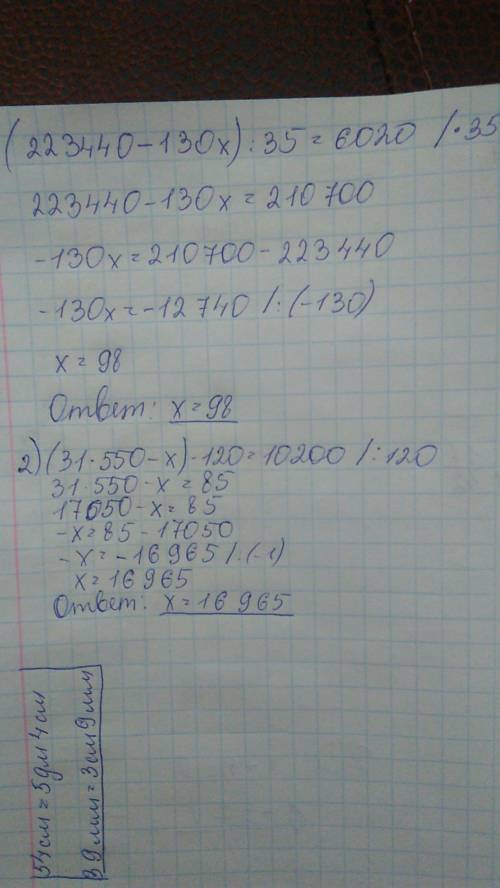 (223440-130x):35=6020 /·35
223440-130x=210700
-130x=210700-223440
-130x=-12740 /:(-130)
x=98
Ответ: x=98
2)(31·550-x)·120=10200 /:120
31·550-x=85
17050-x=85
-x=85-17050
-x=-16965/:(-1)
x=16965
Ответ: x=16965
54см=5дм4см
39мм=3см9мм